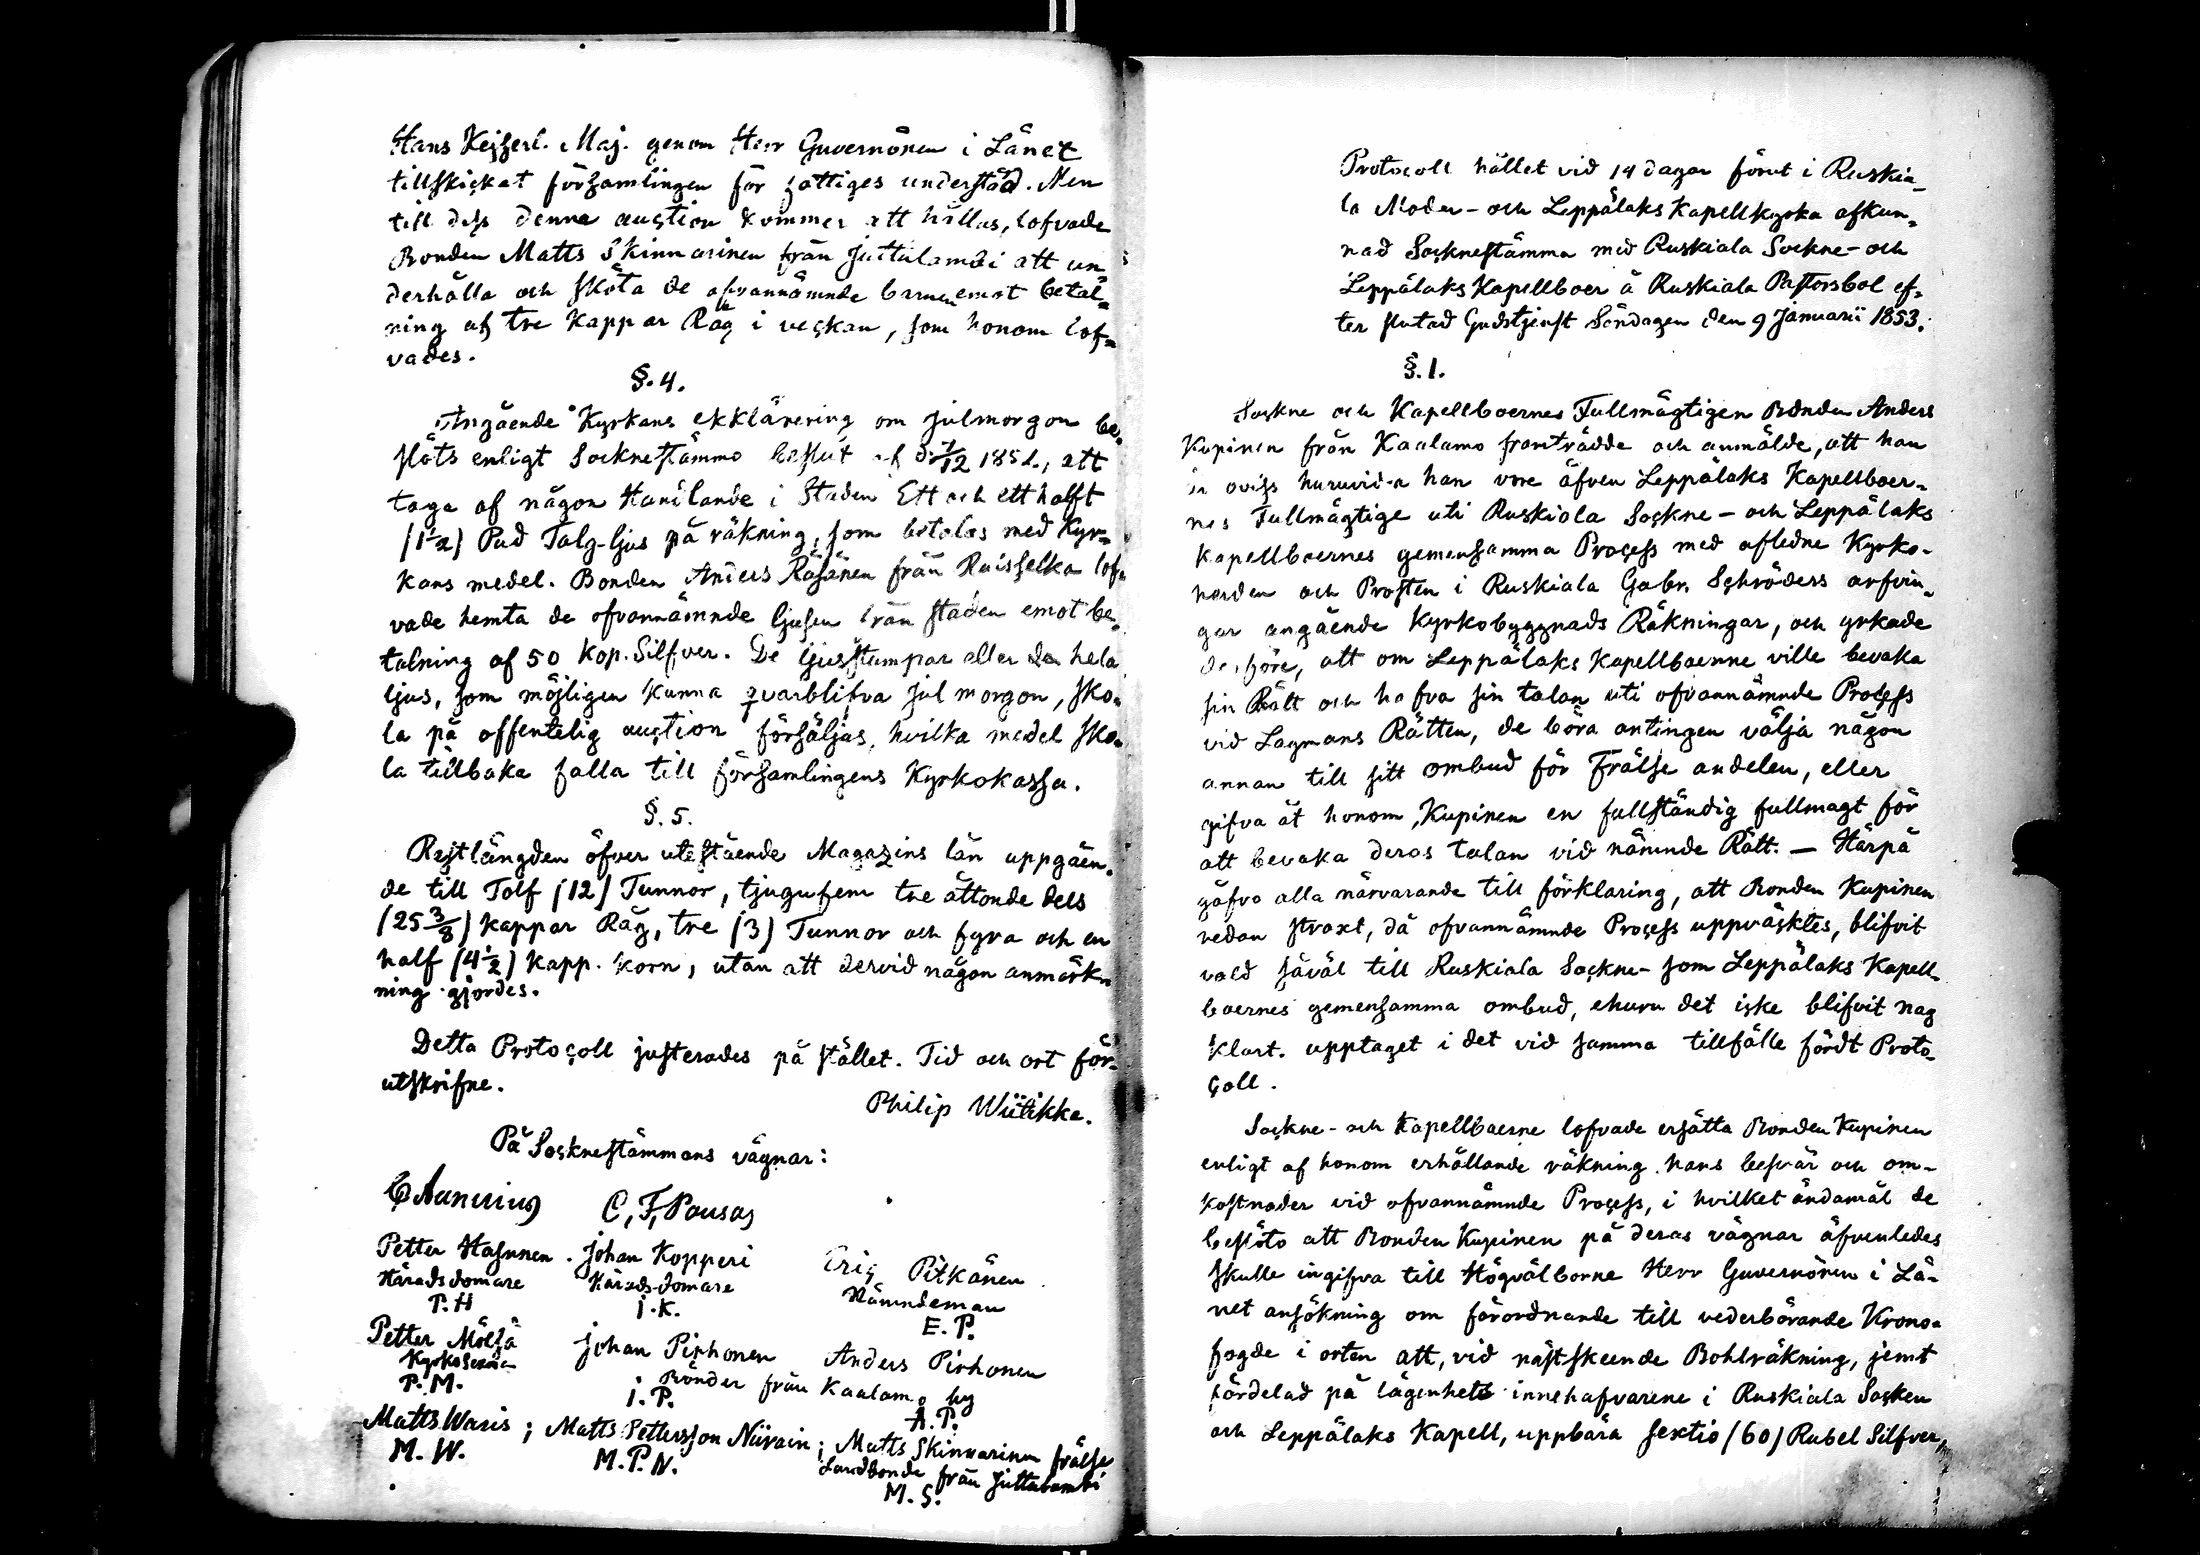 Hans Kejserl. Maj. genom Herr Guvernören i Länet
tillskickat församlingen för fattiges underståd. Men
till dess denna auction kommer att hållas, lofvade
Bonden Matts Skinnarinen från Juttulambi att un-
derhålla och sköta de ofvannämnde barnen emot betal-
ning af tre kappar Råg i veckan, som honom lof-
vades.
§. 4.
Angående Kyrkans eklärering om julmorgon be-
slöts enligt Sockenstämmo beslut af d. 7/12 1851, att
taga af någon Handlande i Staden Ett och ett halft
(1½) Pud Talg-ljus på räkning, som betalas med Kyr-
kans medel. Bonden Anders Räsänen från Ruisselka lof-
vade hemta de ofvannämnde ljusen från staden emot be-
talning af 50 Kop. Silfver. De ljusstumpar eller de hela
ljus, som möjligen kunna qvarblifva julmorgon, sko-
la på offentelig auction försäljas, hvilka medel sko-
la tillbaka falla till församlingens Kyrkokassa.
§. 5.
Restlängden öfver utestående Magazins lån uppgåen-
de till Tolf (12) Tunnor, tjugufem tre åttonde dels
(25 3/8) kappar Råg, tre (3) Tunnor och fyra och en
half (4½) kapp. korn, utan att dervid någon anmärk-
ning gjordes.
Detta Protocoll justerades på stället. Tid och ort för-
utskrifne.
Philip Wiitikka.
På Socknestämmans vägnar:
C. F. Pausas
Petter Hasunen. Johan Kopperi Eric Pitkänen
Häradsdomare Häradsdomare Nämndeman
P. H J. K. E. P.
Petter Mölsä Johan Pirhonen Anders Pirhonen
Kyrkosexm. Bönder från Kaalamo by
P. M. J. P. A. P.
Matts Waris; Matts Pettersson Niirain; Matts Skinnarinen frälse
Landbonde från Juttulambi
M. W. M. P. N. M. S.
Protocoll hållet vid 14 dagar förut i Ruskia-
la Moder- och Leppälaks Kapellkyrka afkun-
nad Socknestämma med Ruskiala Sockne- och
Leppälaks Kapellboer å Ruskiala Pastorsbol ef-
ter slutad Gudstjenst Söndagen den 9 Januarii 1853.
§. 1.
Sockne och Kapellboernes Fullmägtigen Bonden Anders
Kupinen från Kaalamo framträdde och anmälde, att han
är oviss huruvida han vore äfven Leppälaks Kapellboer-
nes Fullmägtige uti Ruskiala Sockne- och Leppälaks
Kapellboernes gemensamma Process med aflidne Kyrko-
herden och Prosten i Ruskiala Gabr. Schröders arfvin-
gar angående Kyrkobyggnads Räkningar, och yrkade
derföre, att om Leppälaks Kapellboerne ville bevaka
sin Rätt och hafva sin talan uti ofvannämnde Process
vid Lagmans Rätten, de böra antingen välja någon
annan till sitt ombud för Frälse andelen, eller
gifva åt honom, Kupinen en fullständig fullmagt för
att bevaka deras talan vid nämnde Rätt. — Härpå
gåfvo alla närvarande till förklaring, att Bonden Kupinen
redan straxt, då ofvannämnde Process uppväcktes, blifvit
vald såväl till Ruskiala Sockne- som Leppälaks Kapell-
boernes gemensamma ombud, ehuru det icke blifvit nog
klart upptaget i det vid samma tillfälle fördt Proto-
coll.
Sockne- och Kapellboerne lofvade ersätta Bonden Kupinen
enligt af honom erhållande räkning hans besvär och om-
kostnader vid ofvannämnde Process, i hvilket ändamål de
beslöto att Bonden Kupinen på deras vägnar äfvenledes
skulle ingifva till Högvälborne Herr Guvernören i Lä-
net ansökning om förordnande till vederbörande Krono-
fogde i orten att, vid nästskeende Bohlräkning, jemt
fördelad på lägenhets innehafvarene i Ruskiala Socken
och Leppälaks Kapell, uppbära sextio (60) Rubel Silfver,